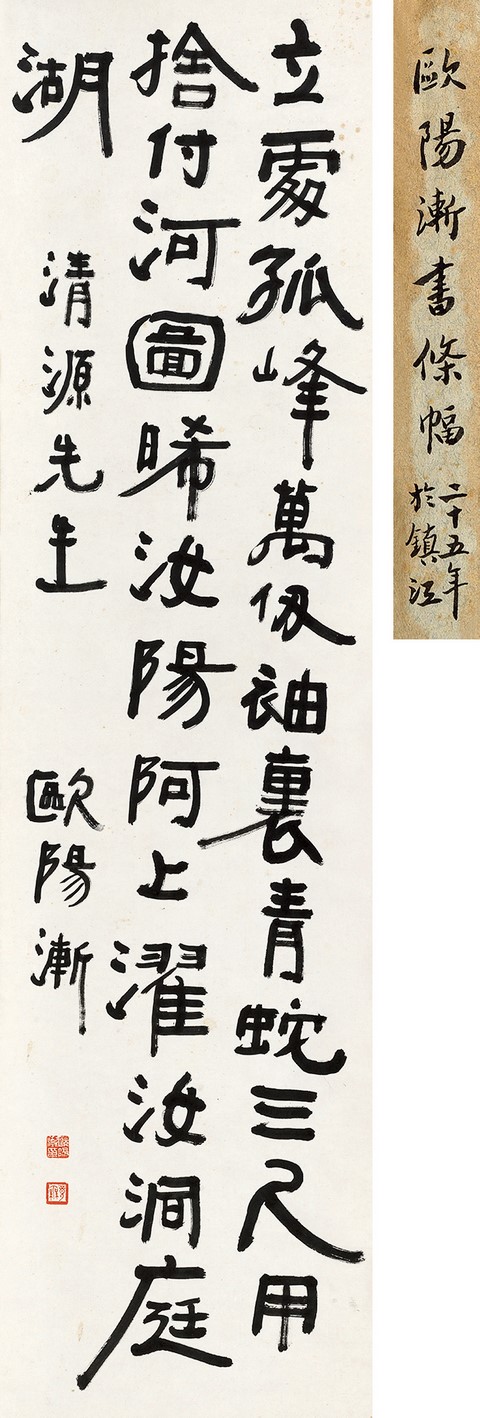 歐陽漸書條幅
二十五年
於鎮江
立處孤峰萬仞袖裏青蛇三尺用
捨付河圖晞汝陽阿上濯汝洞庭
湖
清源先生
歐陽漸